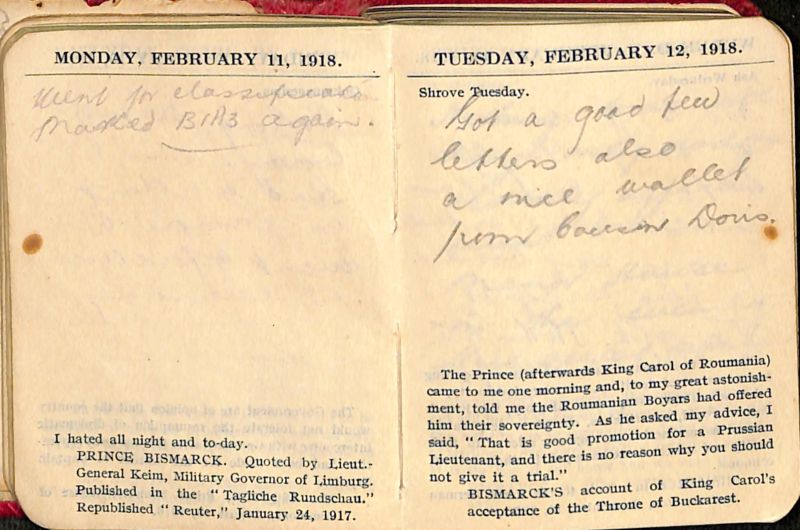 MONDAY, FEBRUARY 11, 1918.
Went for classification
Marked B1A3 again.
I hated all night and to-day.
PRINCE BISMARCK. Quoted by Lieut.-
General Keim, Military Governor of Limburg.
Published in the "Tagliche Rundschau."
Republished "Reuter," January 24, 1917.
TUESDAY, FEBRUARY 12, 1918.
Shrove Tuesday.
Got a good few
letters also
a nice wallet
from Cousin Doris.
The Prince (afterwards King Carol of Roumania)
came to me one morning and, to my great astonish-
ment, told me the Roumanian Boyars had offered
him their sovereignty. As he asked my advice, I
said, "That is good promotion for a Prussian
Lieutenant, and there is no reason why you should
not give it a trial."
BISMARCK'S account of King Carol's
acceptance of the Throne of Buckarest.